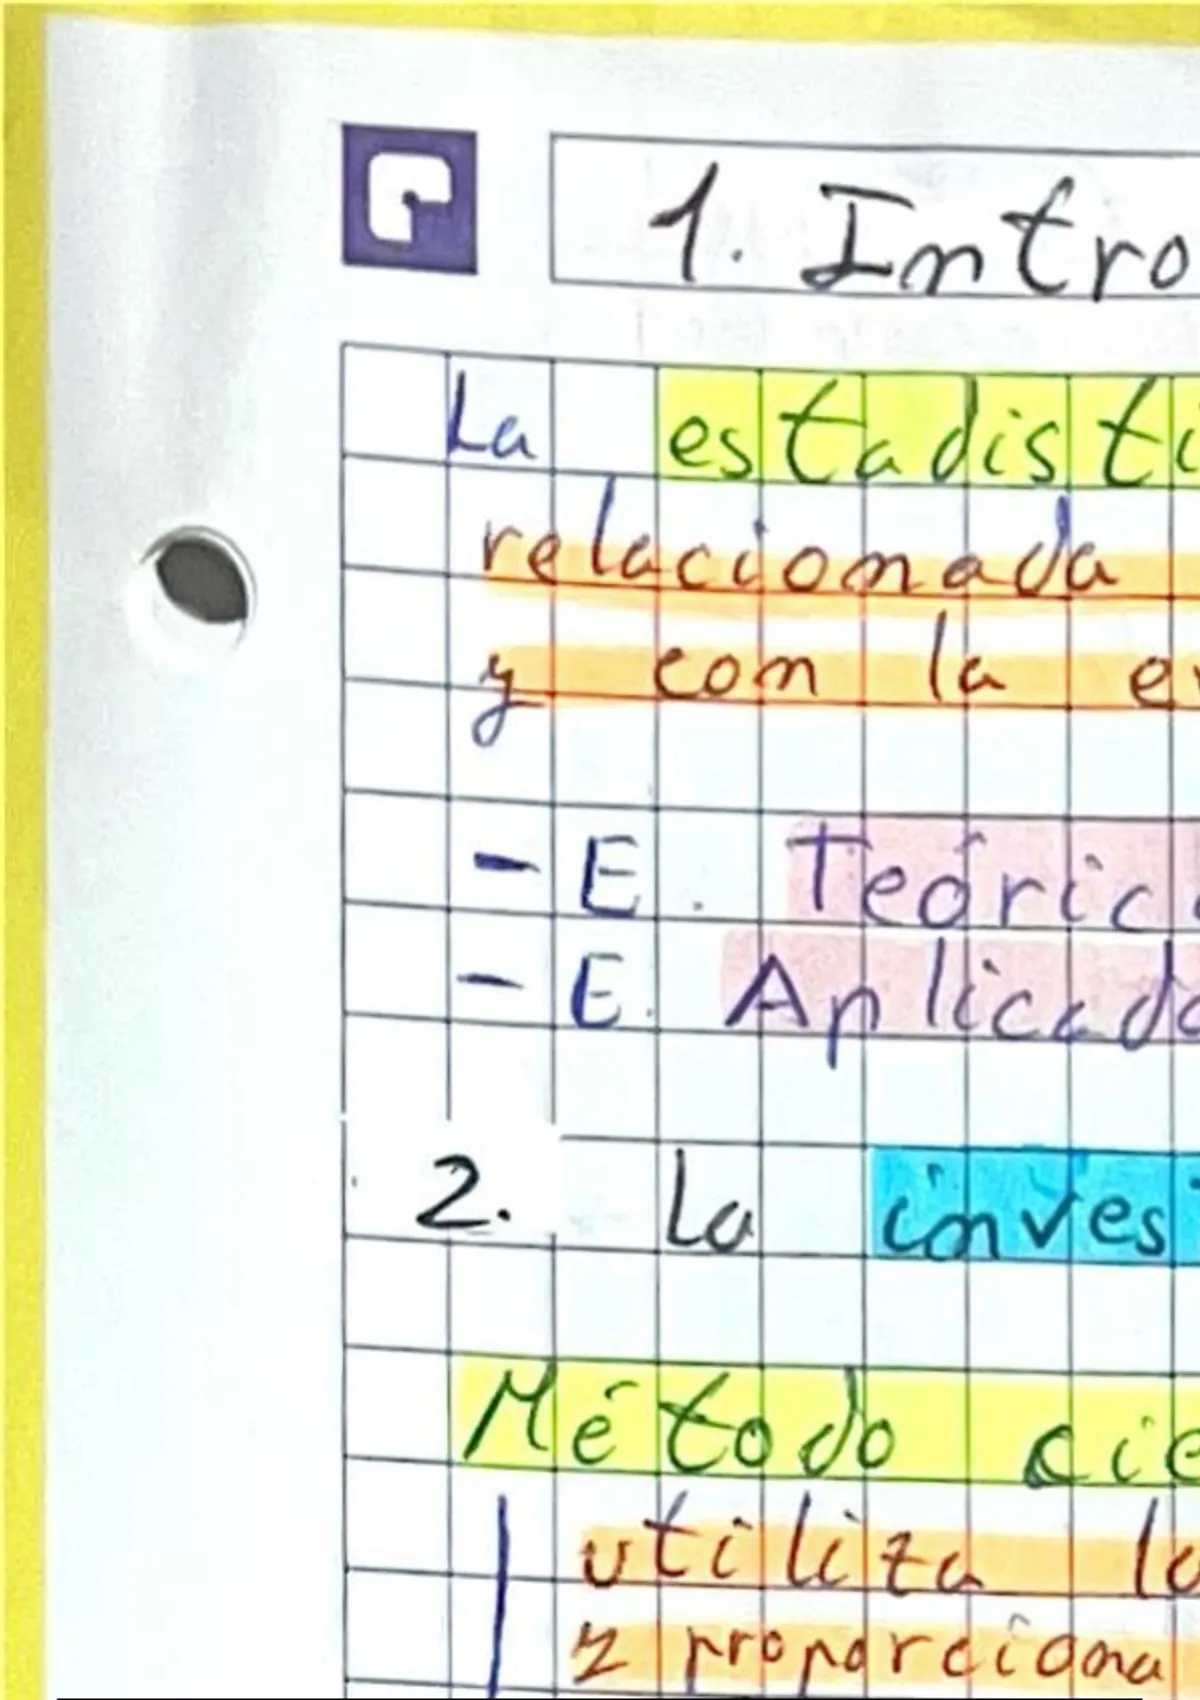 1. Intro
La estadisti
relacionada
y con la ev
- E. Teóric
- E. Aplicada
2. La inves
Método cie
utiliza la
y proporciona